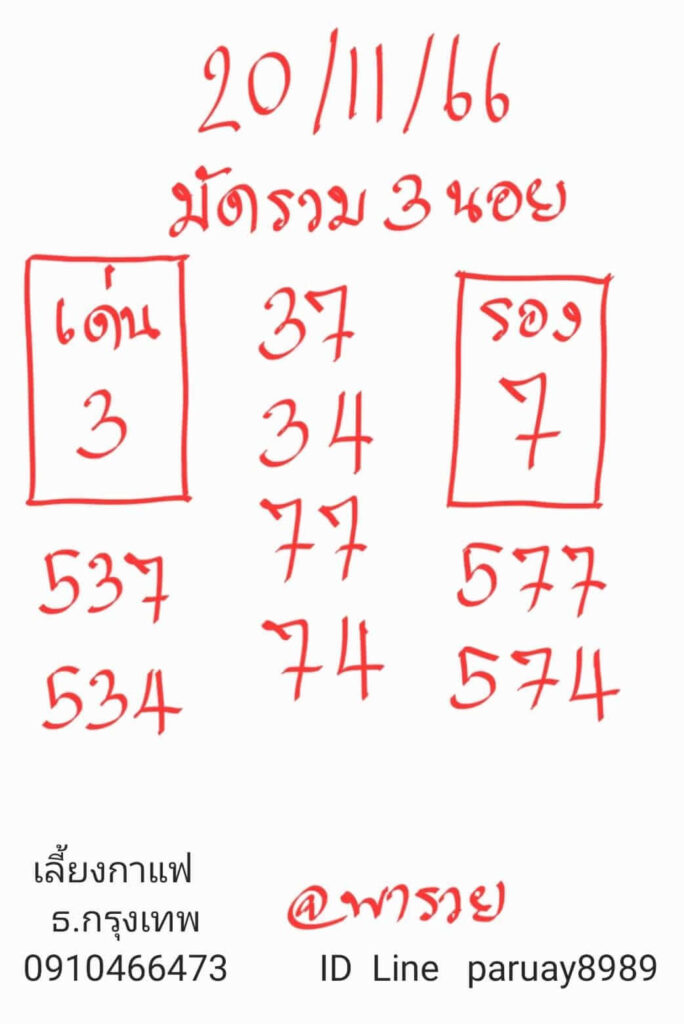 20/11/66
มัดรวม 3 นอย
เด่น
3
37
34
77
74
รอง
7
537
534
577
574
เลี้ยงกาแฟ
ธ.กรุงเทพ
0910466473
@พารวย
ID Line paruay8989